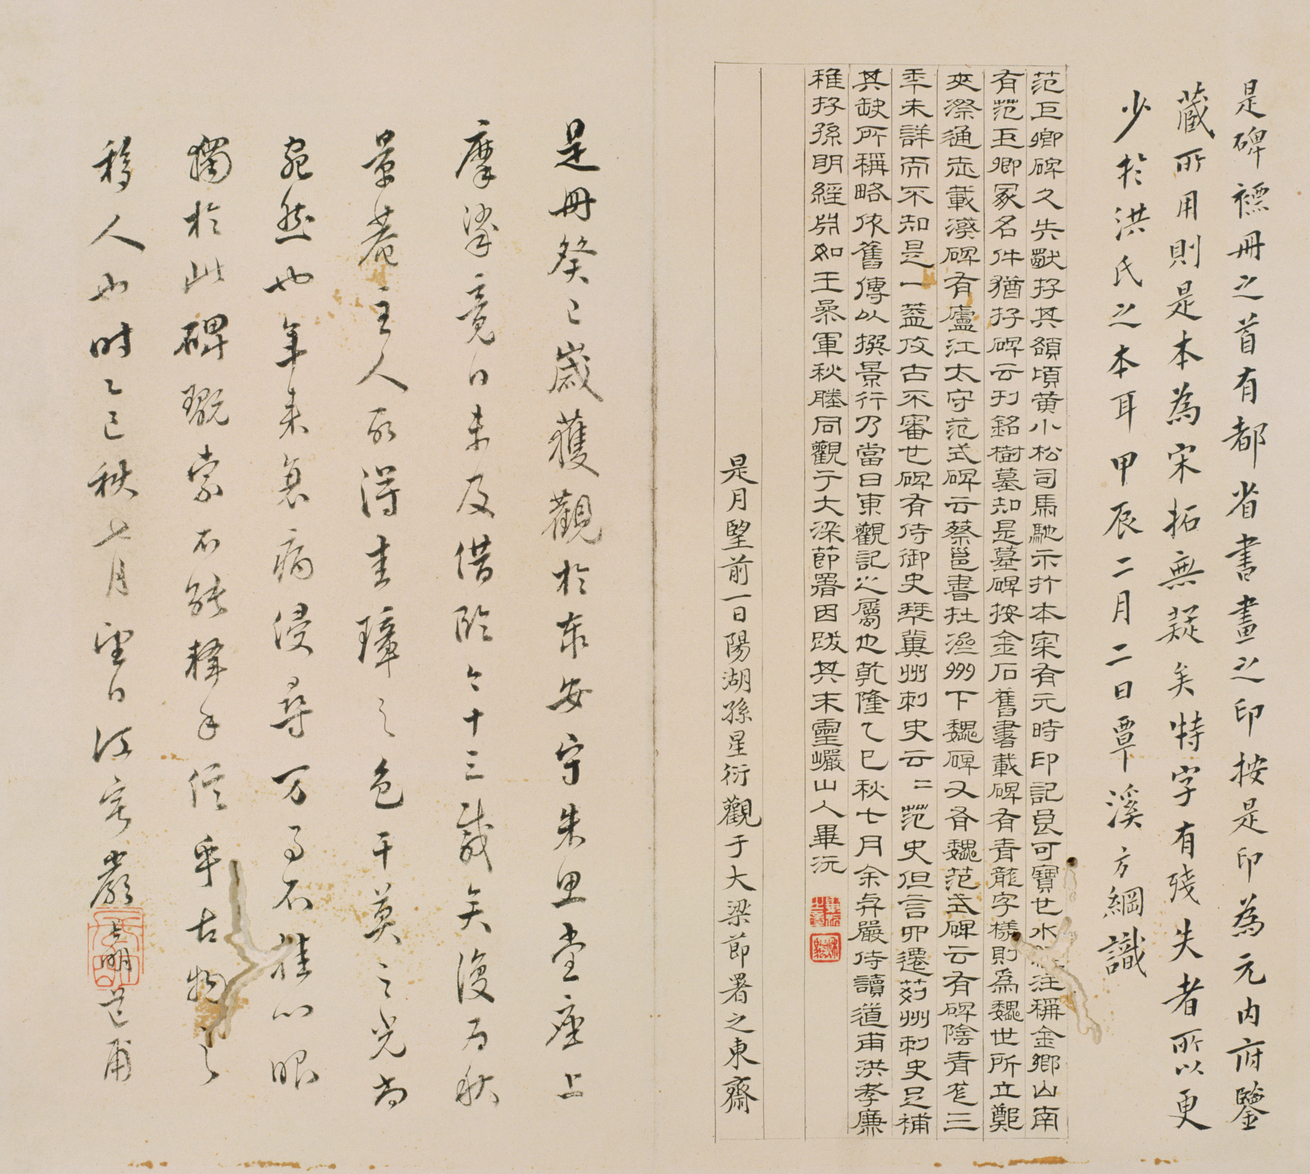 是碑褾冊之首有都省書畫之印按是印為元內府鑒
藏所用則是本為宋拓無疑矣特字有殘失者所以更
少於洪氏之本耳甲辰二月二日覃溪方綱識
范巨卿碑久失獸存其頟頃黃小松司馬馳示拓本案有元時印記良可寶也水經注稱金鄉山南
有范巨卿冢名件猶存碑云刊銘樹墓知是墓碑按金石舊書載碑有青龍字樣則為魏世所立鄭
夾漈通志載漢碑有廬江太守范式碑云蔡邕書在濟州下魏碑又有魏范式碑云有碑陰青龍三
年未詳而不知是一蓋攷古不審也碑有侍御史冀州刺史云二范史但言四遷荊州刺史足補
其缺所稱略依舊傳以撰景行乃當日東觀記之屬也乾隆乙巳秋七月余與嚴侍讀道甫洪孝廉
稚存孫明經淵如王參軍秋塍同觀于大梁節署因跋其末靈巖山人畢沅
是月朢前一日陽湖孫星衍觀于大梁節署之東齋
是冊癸巳歲獲觀於泰安守朱思堂座上
摩挲竟日未及借臨今十三載矣復為秋
景菴主人所得圭璋之色干莫之光尚
宛然也年來衰病侵尋万事不挂心眼
獨於此碑翫索不能釋手信乎古物之
移人也時乙巳秋七月望日江寧嚴長明道甫